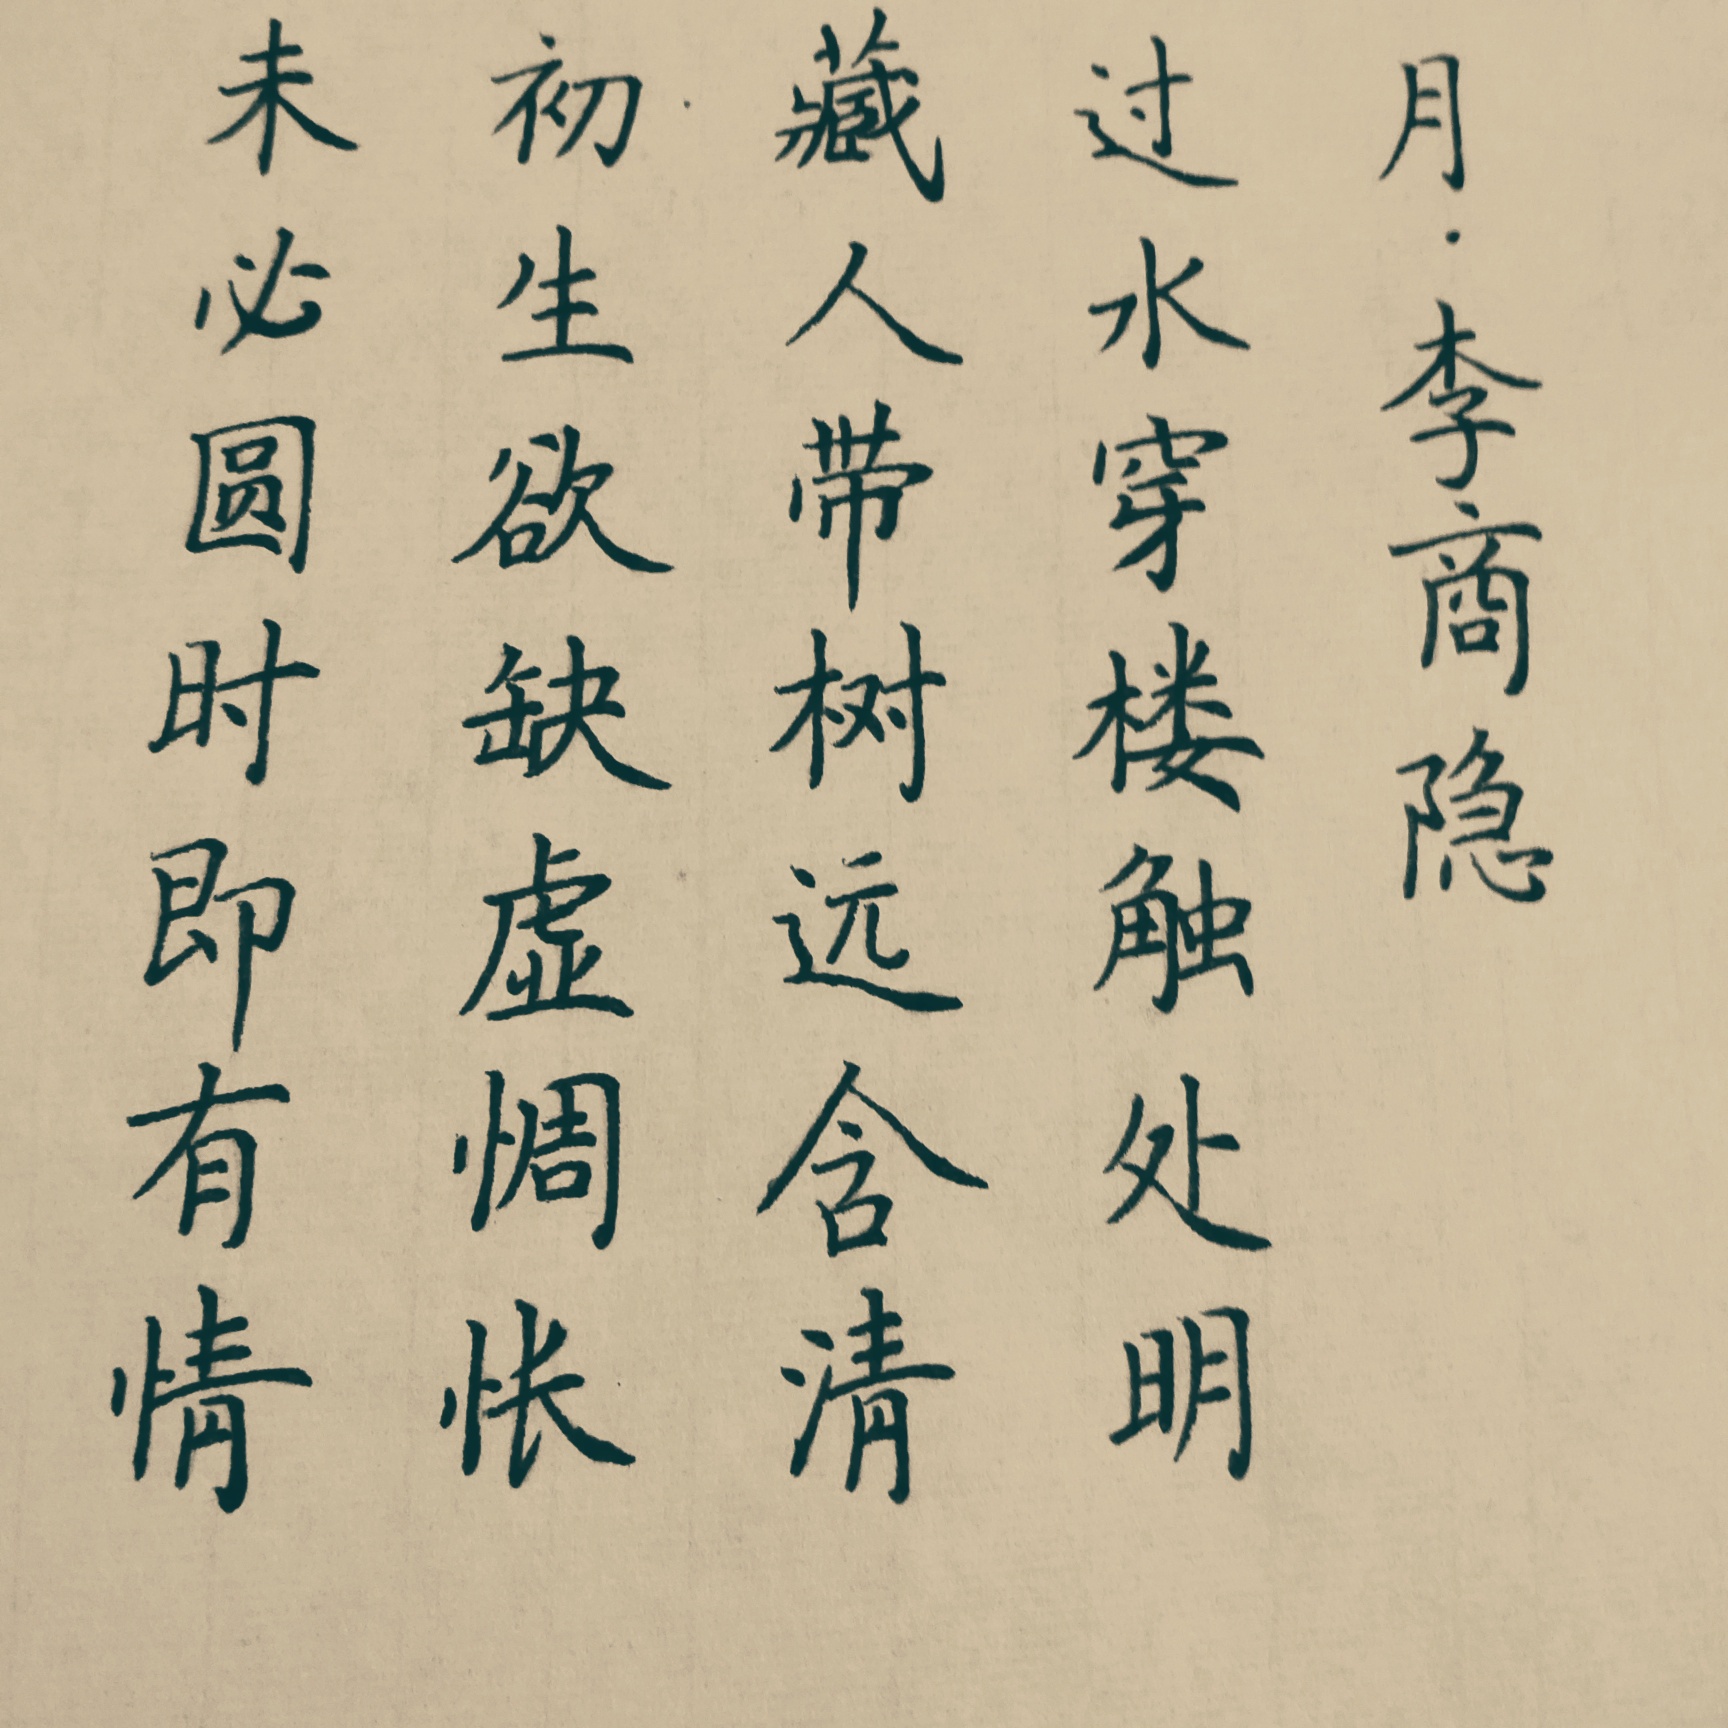 月·李商隐
过水穿楼触处明
藏人带树远含清
初生欲缺虚惆怅
未必圆时即有情